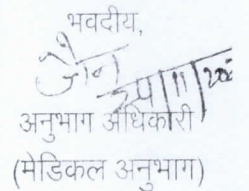 भवदीय,
अनुभाग अधिकारी
(मेडिकल अनुभाग)